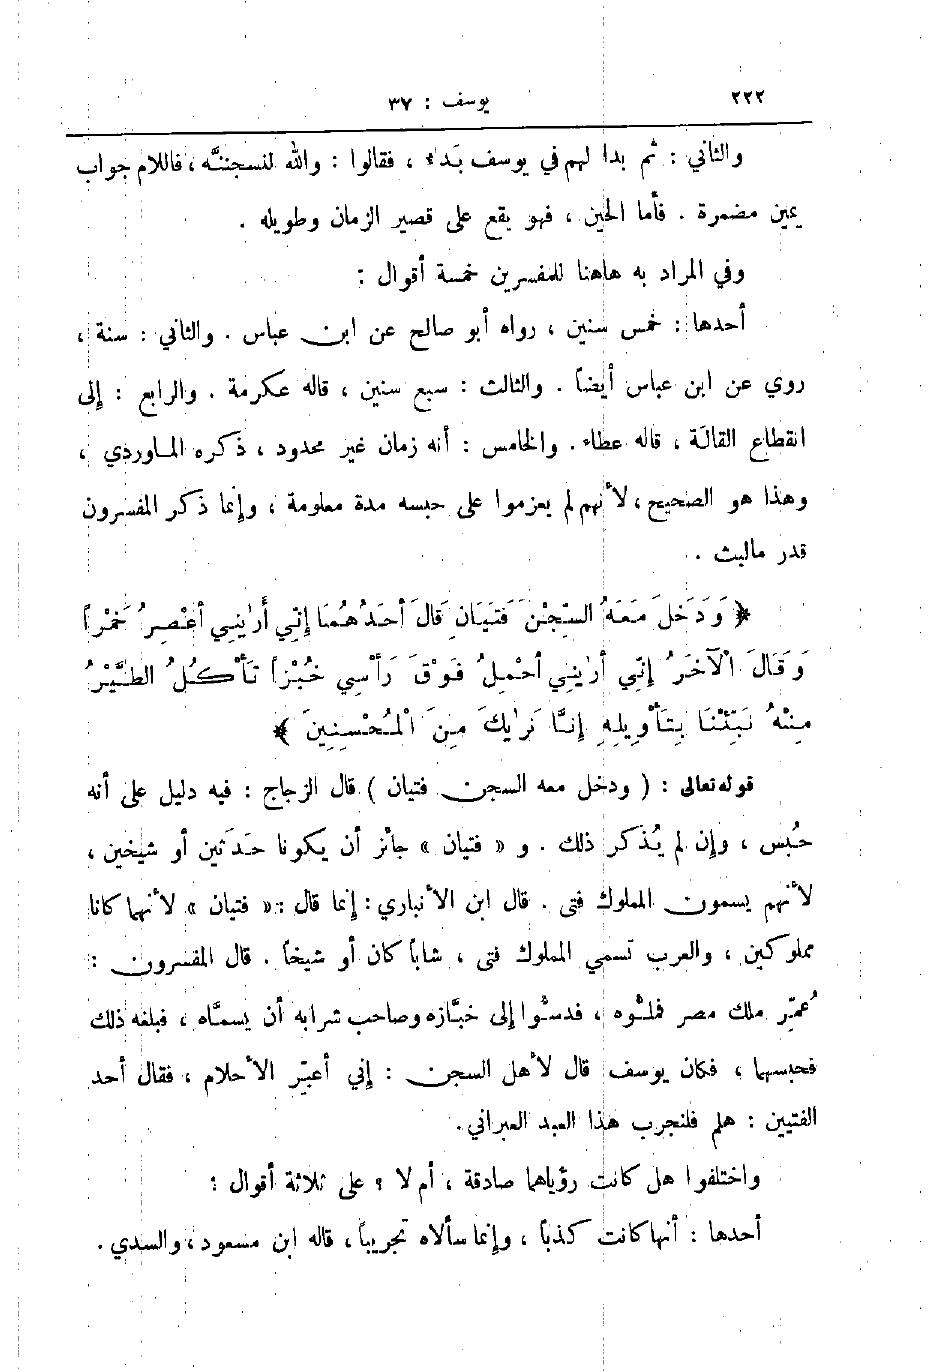 ٢٢٢ يوسف : ٣٧
والثاني : ثم بدا لهم في يوسف بَداء ، فقالوا : والله لنسجننَّه ، فاللام جواب
يمين مضمرة . فأما الحين ، فهو يقع على قصير الزمان وطويله .
وفي المراد به هاهنا للمفسرين خمسة أقوال :
أحدها : خمس سنين ، رواه أبو صالح عن ابن عباس . والثاني : سنة ،
روي عن ابن عباس أيضاً . والثالث : سبع سنين ، قاله عكرمة . والرابع : إلى
انقطاع القالَة ، قاله عطاء . والخامس : أنه زمان غير محدود ، ذكره الماوردي ،
وهذا هو الصحيح ، لأنهم لم يعزموا على حبسه مدة معلومة ، وإنما ذكر المفسرون
قدر مالبث .
﴿ وَدَخَلَ مَعَهُ السِّجْنَ فَتَيَانِ قَالَ أَحَدُهُمَا إِنِّي أَرٰينِي أَعْصِرُ خَمْراً
وَقَالَ الْآخَرُ إِنِّي أَرٰينِي أَحْمِلُ فَوْقَ رَأْسِي خُبْزاً تَأْكُلُ الطَّيْرُ
مِنْهُ نَبِّئْنَا بِتَأْوِيلِهِ إِنَّا نَرٰيكَ مِنَ الْمُحْسِنِينَ ﴾
قوله تعالى : ( ودخل معه السجن فتيان ) قال الزجاج : فيه دليل على أنه
حُبس ، وإن لم يُذكر ذلك . و « فتيان » جائز أن يكونا حَدَثين أو شيخين ،
لأنهم يسمون المملوك فتى . قال ابن الأنباري : إنما قال : « فتيان » لأنهما كانا
مملوكين ، والعرب تسمي المملوك فتى ، شاباً كان أو شيخاً . قال المفسرون :
عُمِّر ملك مصر فملُّوه ، فدسُّوا إلى خبَّازه وصاحب شرابه أن يسمَّاه ، فبلغه ذلك
فحبسهما ، فكان يوسف قال لأهل السجن : إني أعبِّر الأحلام ، فقال أحد
الفتيين : هلم فلنجرب هذا العبد العبراني .
واختلفوا هل كانت رؤياهما صادقة ، أم لا ؟ على ثلاثة أقوال :
أحدها : أنها كانت كذباً ، وإنما سألاه تجريباً ، قاله ابن مسعود ، والسدي .